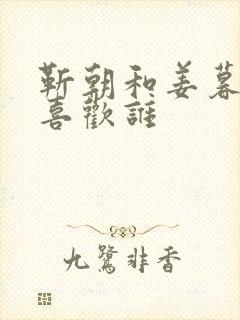 靳朝和姜暮
喜歡誰
九鷺非香